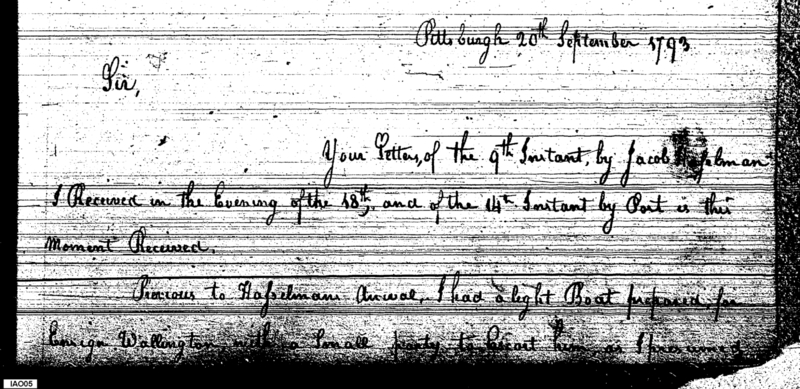 Pittsburgh 20th September 1793
Sir,
Your Letters, of the 9th Instant, by Jacob Hasselman
I Received in the Evening of the 18th, and of the 14th Instant by Post is this
Moment Received.
Previous to Hasselmans Arival, I had a light Boat prepared for
Ensign Wallington with a Small party to Escort him as I presumed
IAO05